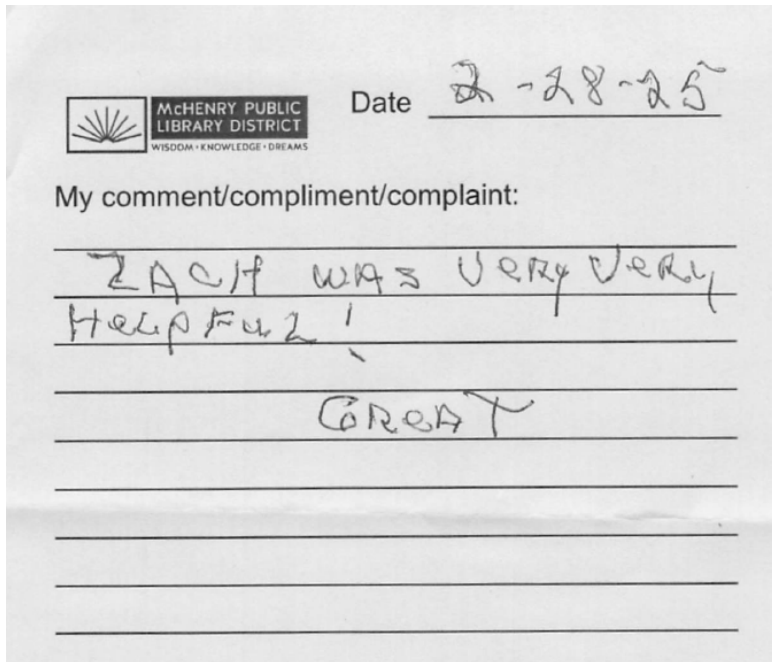 McHENRY PUBLIC
LIBRARY DISTRICT
WISDOM • KNOWLEDGE • DREAMS
Date 2-28-25
My comment/compliment/complaint:
ZACH WAS VeRy VeRy
HeLpFuL!
GReAT